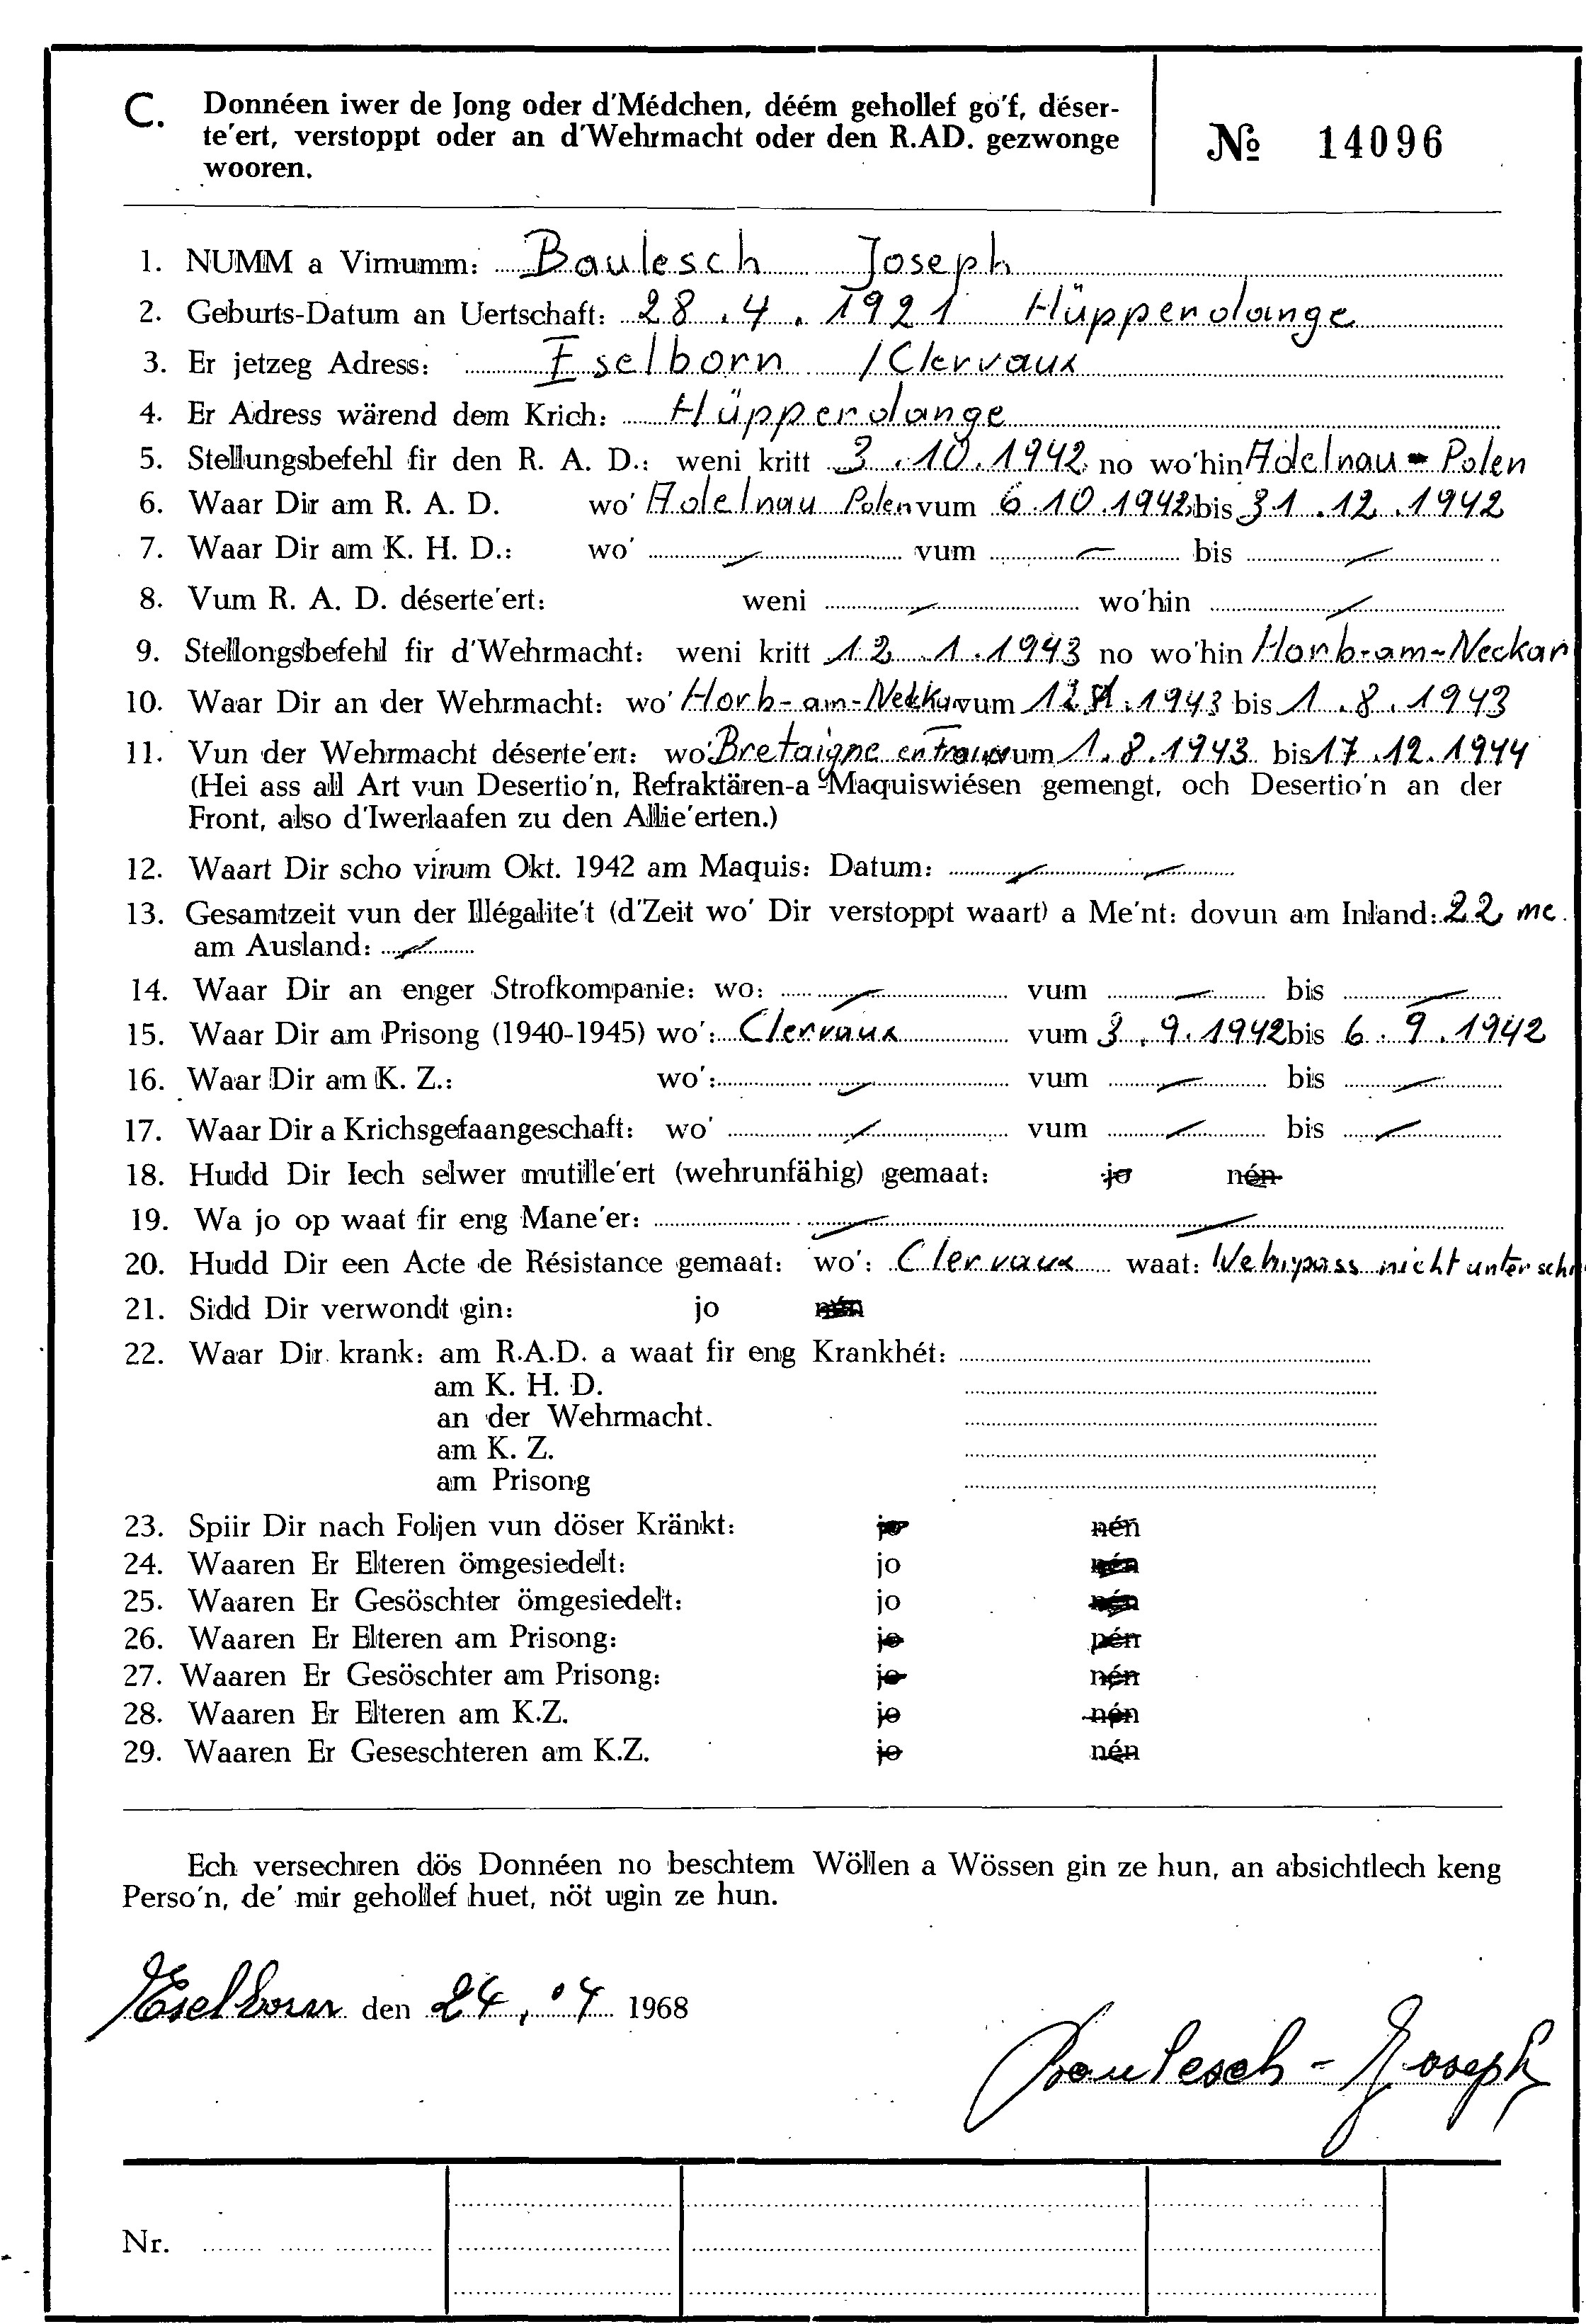 C. Donnéen iwer de Jong oder d'Médchen, déém gehollef go'f, déser-
te'ert, verstoppt oder an d'Wehrmacht oder den R.AD. gezwonge
wooren.
№ 14096
1. NUMM a Virnumm: Baulesch Joseph
2. Geburts-Datum an Uertschaft: 28.4.1921 Hüpperdange
3. Er jetzeg Adress: Eselborn /Clervaux
4. Er Adress wärend dem Krich: Hüpperdange
5. Stellungsbefehl fir den R. A. D.: weni kritt 3.10.1942 no wo'hin Adelnau - Polen
6. Waar Dir am R. A. D. wo' Adelnau Polen vum 6.10.1942 bis 31.12.1942
7. Waar Dir am K. H. D.: wo' vum bis
8. Vum R. A. D. déserte'ert: weni wo'hin
9. Stellongsbefehl fir d'Wehrmacht: weni kritt 12.1.1943 no wo'hin Horb-am-Neckar
10. Waar Dir an der Wehrmacht: wo' Horb-am-Neckar vum 12.1.1943 bis 1.8.1943
11. Vun der Wehrmacht déserte'ert: wo' Bretaigne en France vum 1.8.1943 bis 17.12.1944
(Hei ass all Art vun Desertio'n, Refraktären-a Maquiswiésen gemengt, och Desertio'n an der
Front, also d'Iwerlaafen zu den Allie'erten.)
12. Waart Dir scho virum Okt. 1942 am Maquis: Datum:
13. Gesamtzeit vun der Illégalite't (d'Zeit wo' Dir verstoppt waart) a Me'nt: dovun am Inland: 22
am Ausland:
14. Waar Dir an enger Strofkompanie: wo: vum bis
15. Waar Dir am Prisong (1940-1945) wo': Clervaux vum 3.9.1942 bis 6.9.1942
16. Waar Dir am K. Z.: wo': vum bis
17. Waar Dir a Krichsgefaangeschaft: wo' vum bis
18. Hudd Dir Iech selwer mutille'ert (wehrunfähig) gemaat: jo nén
19. Wa jo op waat fir eng Mane'er:
20. Hudd Dir een Acte de Résistance gemaat: wo': Clervaux waat: Wehrpass nicht unter sch
21. Sidd Dir verwondt gin: jo nén
22. Waar Dir krank: am R.A.D. a waat fir eng Krankhét:
am K. H. D.
an der Wehrmacht.
am K. Z.
am Prisong
23. Spiir Dir nach Foljen vun döser Kränkt: jo nén
24. Waaren Er Elteren ömgesiedelt: jo nén
25. Waaren Er Gesöschter ömgesiedelt: jo nén
26. Waaren Er Elteren am Prisong: jo nén
27. Waaren Er Gesöschter am Prisong: jo nén
28. Waaren Er Elteren am K.Z. jo nén
29. Waaren Er Geseschteren am K.Z. jo nén
Ech versechren dös Donnéen no beschtem Wöllen a Wössen gin ze hun, an absichtlech keng
Perso'n, de' mir gehollef huet, nöt ugin ze hun.
Eselborn den 24.04 1968
Baulesch-Joseph
Nr.